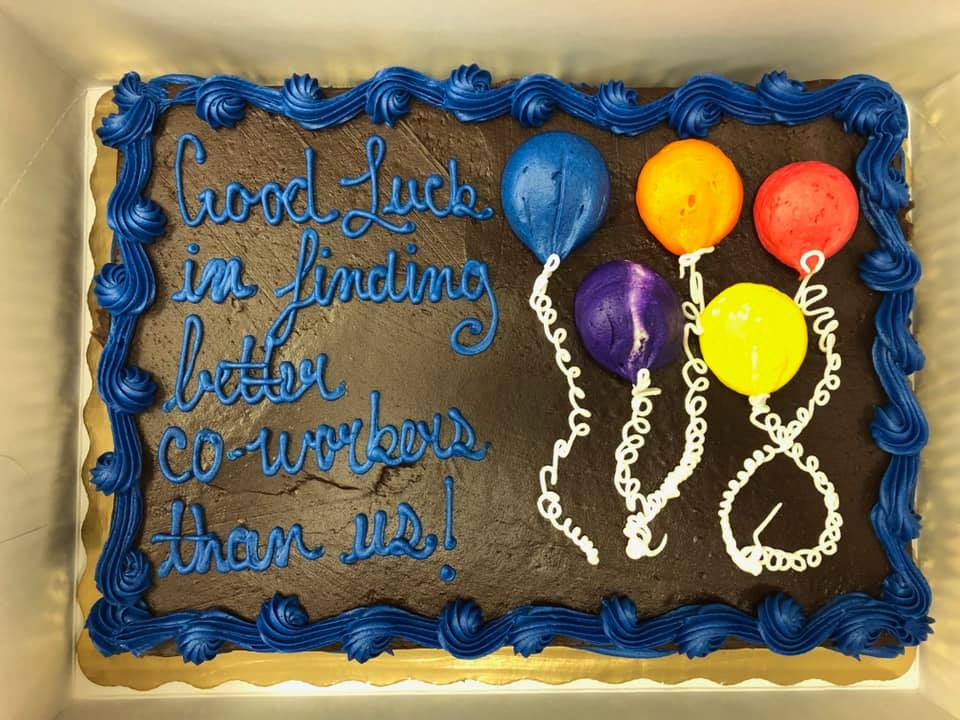 Good Luck
in finding
better
co-workers
than us!